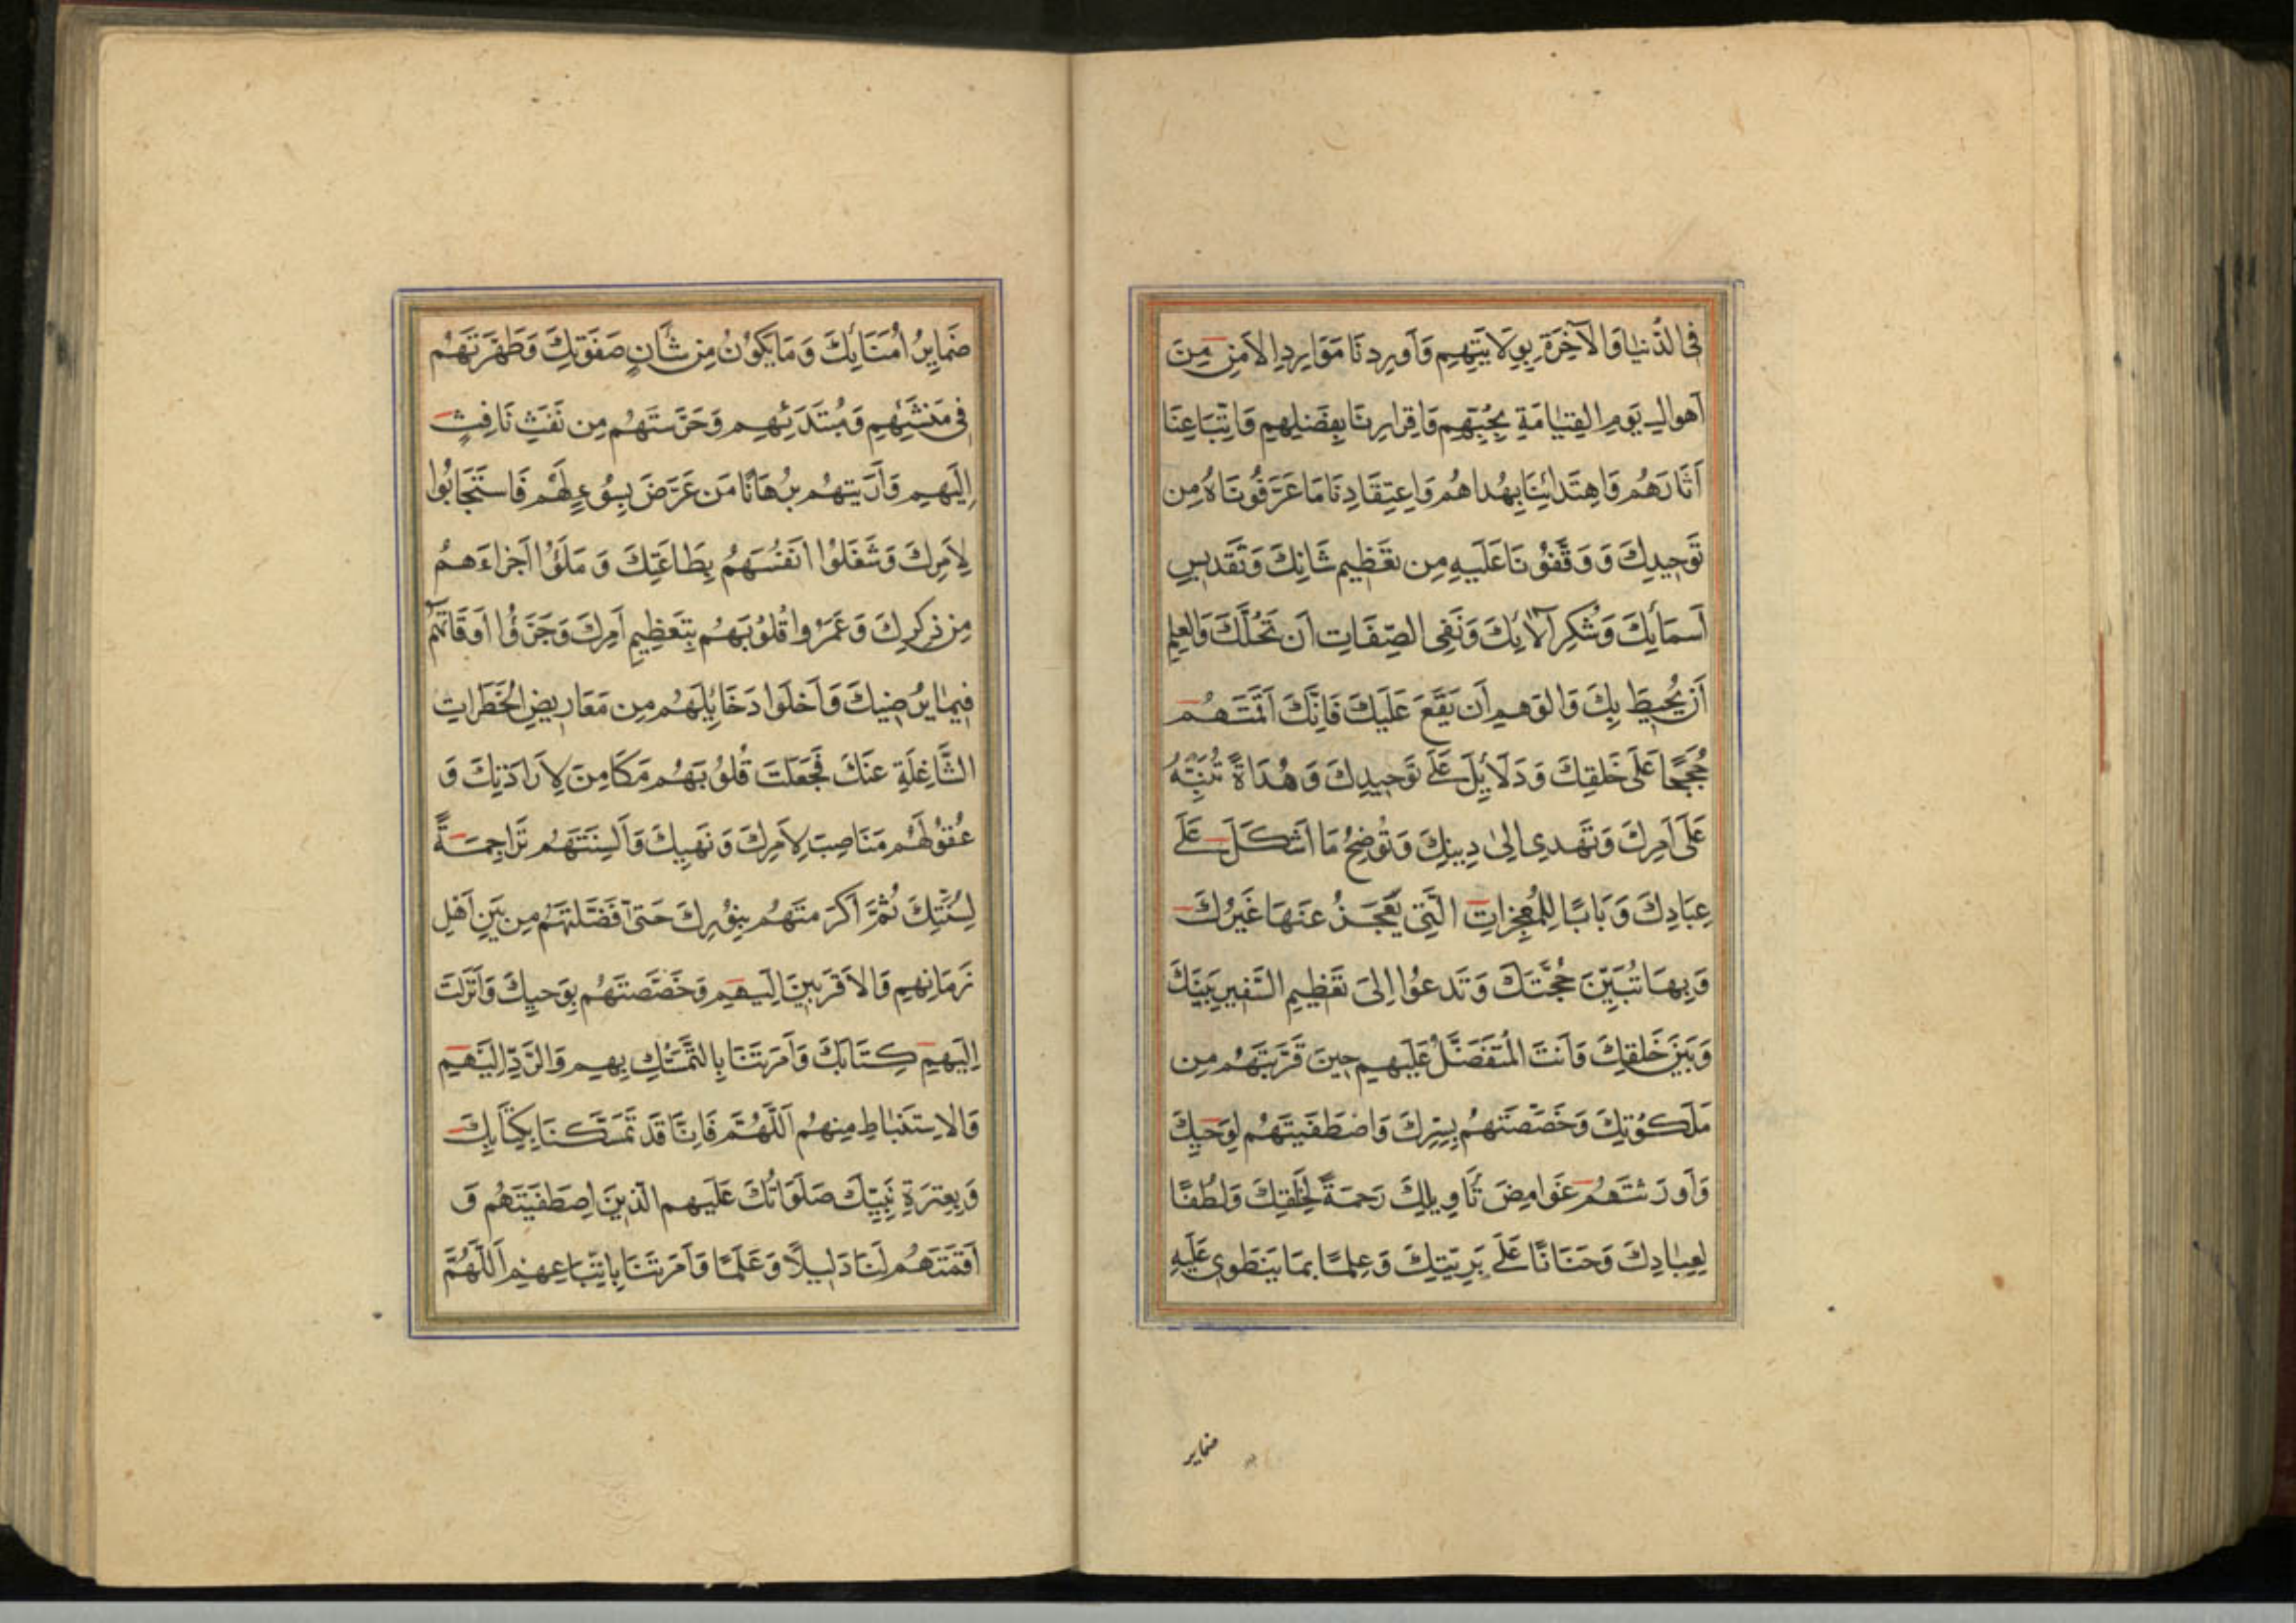 فِی الدُّنْیٰا وَالْآخِرَةِ بِوِلَایَتِهِمْ وَاَوْرِدْنَا مَوَارِدَ الْاَمْنِ مِنَ
اَهْوَالِ یَوْمِ الْقِیٰامَةِ بِحُبِّهِمْ وَاِقْرَارِنَا بِفَضْلِهِمْ وَاتِّبَاعِنَا
آثَارَهُمْ وَاهْتِدَائِنَا بِهُدَاهُمْ وَاعْتِقَادِنَا مَا عَرَّفُونَاهُ مِنْ
تَوْحِیدِكَ وَوَقَّفُونَا عَلَیْهِ مِنْ تَعْظِیمِ شَانِكَ وَتَقْدِیسِ
اَسْمَائِكَ وَشُكْرِ آلَائِكَ وَنَفْیِ الصِّفَاتِ اَنْ تَحُلَّكَ وَالْعِلْمِ
اَنْ یُحِیطَ بِكَ وَالْوَهْمِ اَنْ یَقَعَ عَلَیْكَ فَاِنَّكَ اَقَمْتَهُمْ
حُجَجًا عَلَی خَلْقِكَ وَدَلَائِلَ عَلَی تَوْحِیدِكَ وَهُدَاةً تُنَبِّهُ
عَلَی اَمْرِكَ وَتَهْدِی اِلیٰ دِینِكَ وَتُوضِحُ مَا اَشْكَلَ عَلَی
عِبَادِكَ وَبَابًا لِلْمُعْجِزَاتِ الَّتِی یَعْجِزُ عَنْهَا غَیْرُكَ
وَبِهَا تُبَیِّنُ حُجَّتَكَ وَتَدْعُوا اِلیَ تَعْظِیمِ السَّفِیرِ بَیْنَكَ
وَبَیْنَ خَلْقِكَ وَاَنْتَ الْمُتَفَضِّلُ عَلَیْهِمْ حِینَ قَرَّبْتَهُمْ مِنْ
مَلَكُوتِكَ وَخَصَصْتَهُمْ بِسِرِّكَ وَاصْطَفَیْتَهُمْ لِوَحْیِكَ
وَاَوْرَثْتَهُمْ غَوَامِضَ تَاْوِیلِكَ رَحْمَةً لِخَلْقِكَ وَلُطْفًا
لِعِبٰادِكَ وَحَنَانًا عَلَی بَرِیَّتِكَ وَعِلْمًا بِمَا یَنْطَوِی عَلَیْهِ
ضمایر
ضَمَایِرُ اُمَنَائِكَ وَمَا یَكُونُ مِنْ شَأْنِ صَفْوَتِكَ وَطَهَّرْتَهُمْ
فِی مَنْشَئِهِمْ وَمُبْتَدَئِهِمْ وَحَرَسْتَهُمْ مِنْ نَفْثِ نَافِثٍ
اِلَیْهِمْ وَاَرَیْتَهُمْ بُرْهَانًا مَنْ عَرَّضَ بِسُوءٍ لَهُمْ فَاسْتَجَابُوا
لِاَمْرِكَ وَشَغَلُوْا اَنْفُسَهُمْ بِطَاعَتِكَ وَمَلَؤُا اَجْزَاءَهُمْ
مِنْ ذِكْرِكَ وَعَمَرُوا قُلُوبَهُمْ بِتَعْظِیمِ اَمْرِكَ وَجَزَّؤُا اَوْقَاتَهُمْ
فِیمٰا یُرْضِیكَ وَاَخْلَوْا دَخَائِلَهُمْ مِنْ مَعَارِیضِ الْخَطَرَاتِ
الشَّاغِلَةِ عَنْكَ فَجَعَلْتَ قُلُوبَهُمْ مَكَامِنَ لِاِرَادَتِكَ وَ
عُقُولَهُمْ مَنَاصِبَ لِاَمْرِكَ وَنَهْیِكَ وَاَلْسِنَتَهُمْ تَرَاجِمَةً
لِسُنَّتِكَ ثُمَّ اَكْرَمْتَهُمْ بِنُورِكَ حَتّٰی فَضَّلْتَهُمْ مِنْ بَیْنِ اَهْلِ
زَمَانِهِمْ وَالْاَقْرَبِینَ اِلَیْهِمْ وَخَصَّصْتَهُمْ بِوَحْیِكَ وَاَنْزَلْتَ
اِلَیْهِمْ كِتَابَكَ وَاَمَرْتَنَا بِالتَّمَسُّكِ بِهِمْ وَالرَّدِّ اِلَیْهِمْ
وَالْاِسْتِنْبٰاطِ مِنْهُمْ اَللّٰهُمَّ فَاِنَّا قَدْ تَمَسَّكْنَا بِكِتَابِكَ
وَبِعِتْرَةِ نَبِیِّكَ صَلَوَاتُكَ عَلَیْهِمْ الَّذِینَ اصْطَفَیْتَهُمْ وَ
اَقَمْتَهُمْ لَنَا دَلِیلًا وَعَلَمًا وَاَمَرْتَنَا بِاتِّبَاعِهِمْ اَللّٰهُمَّ